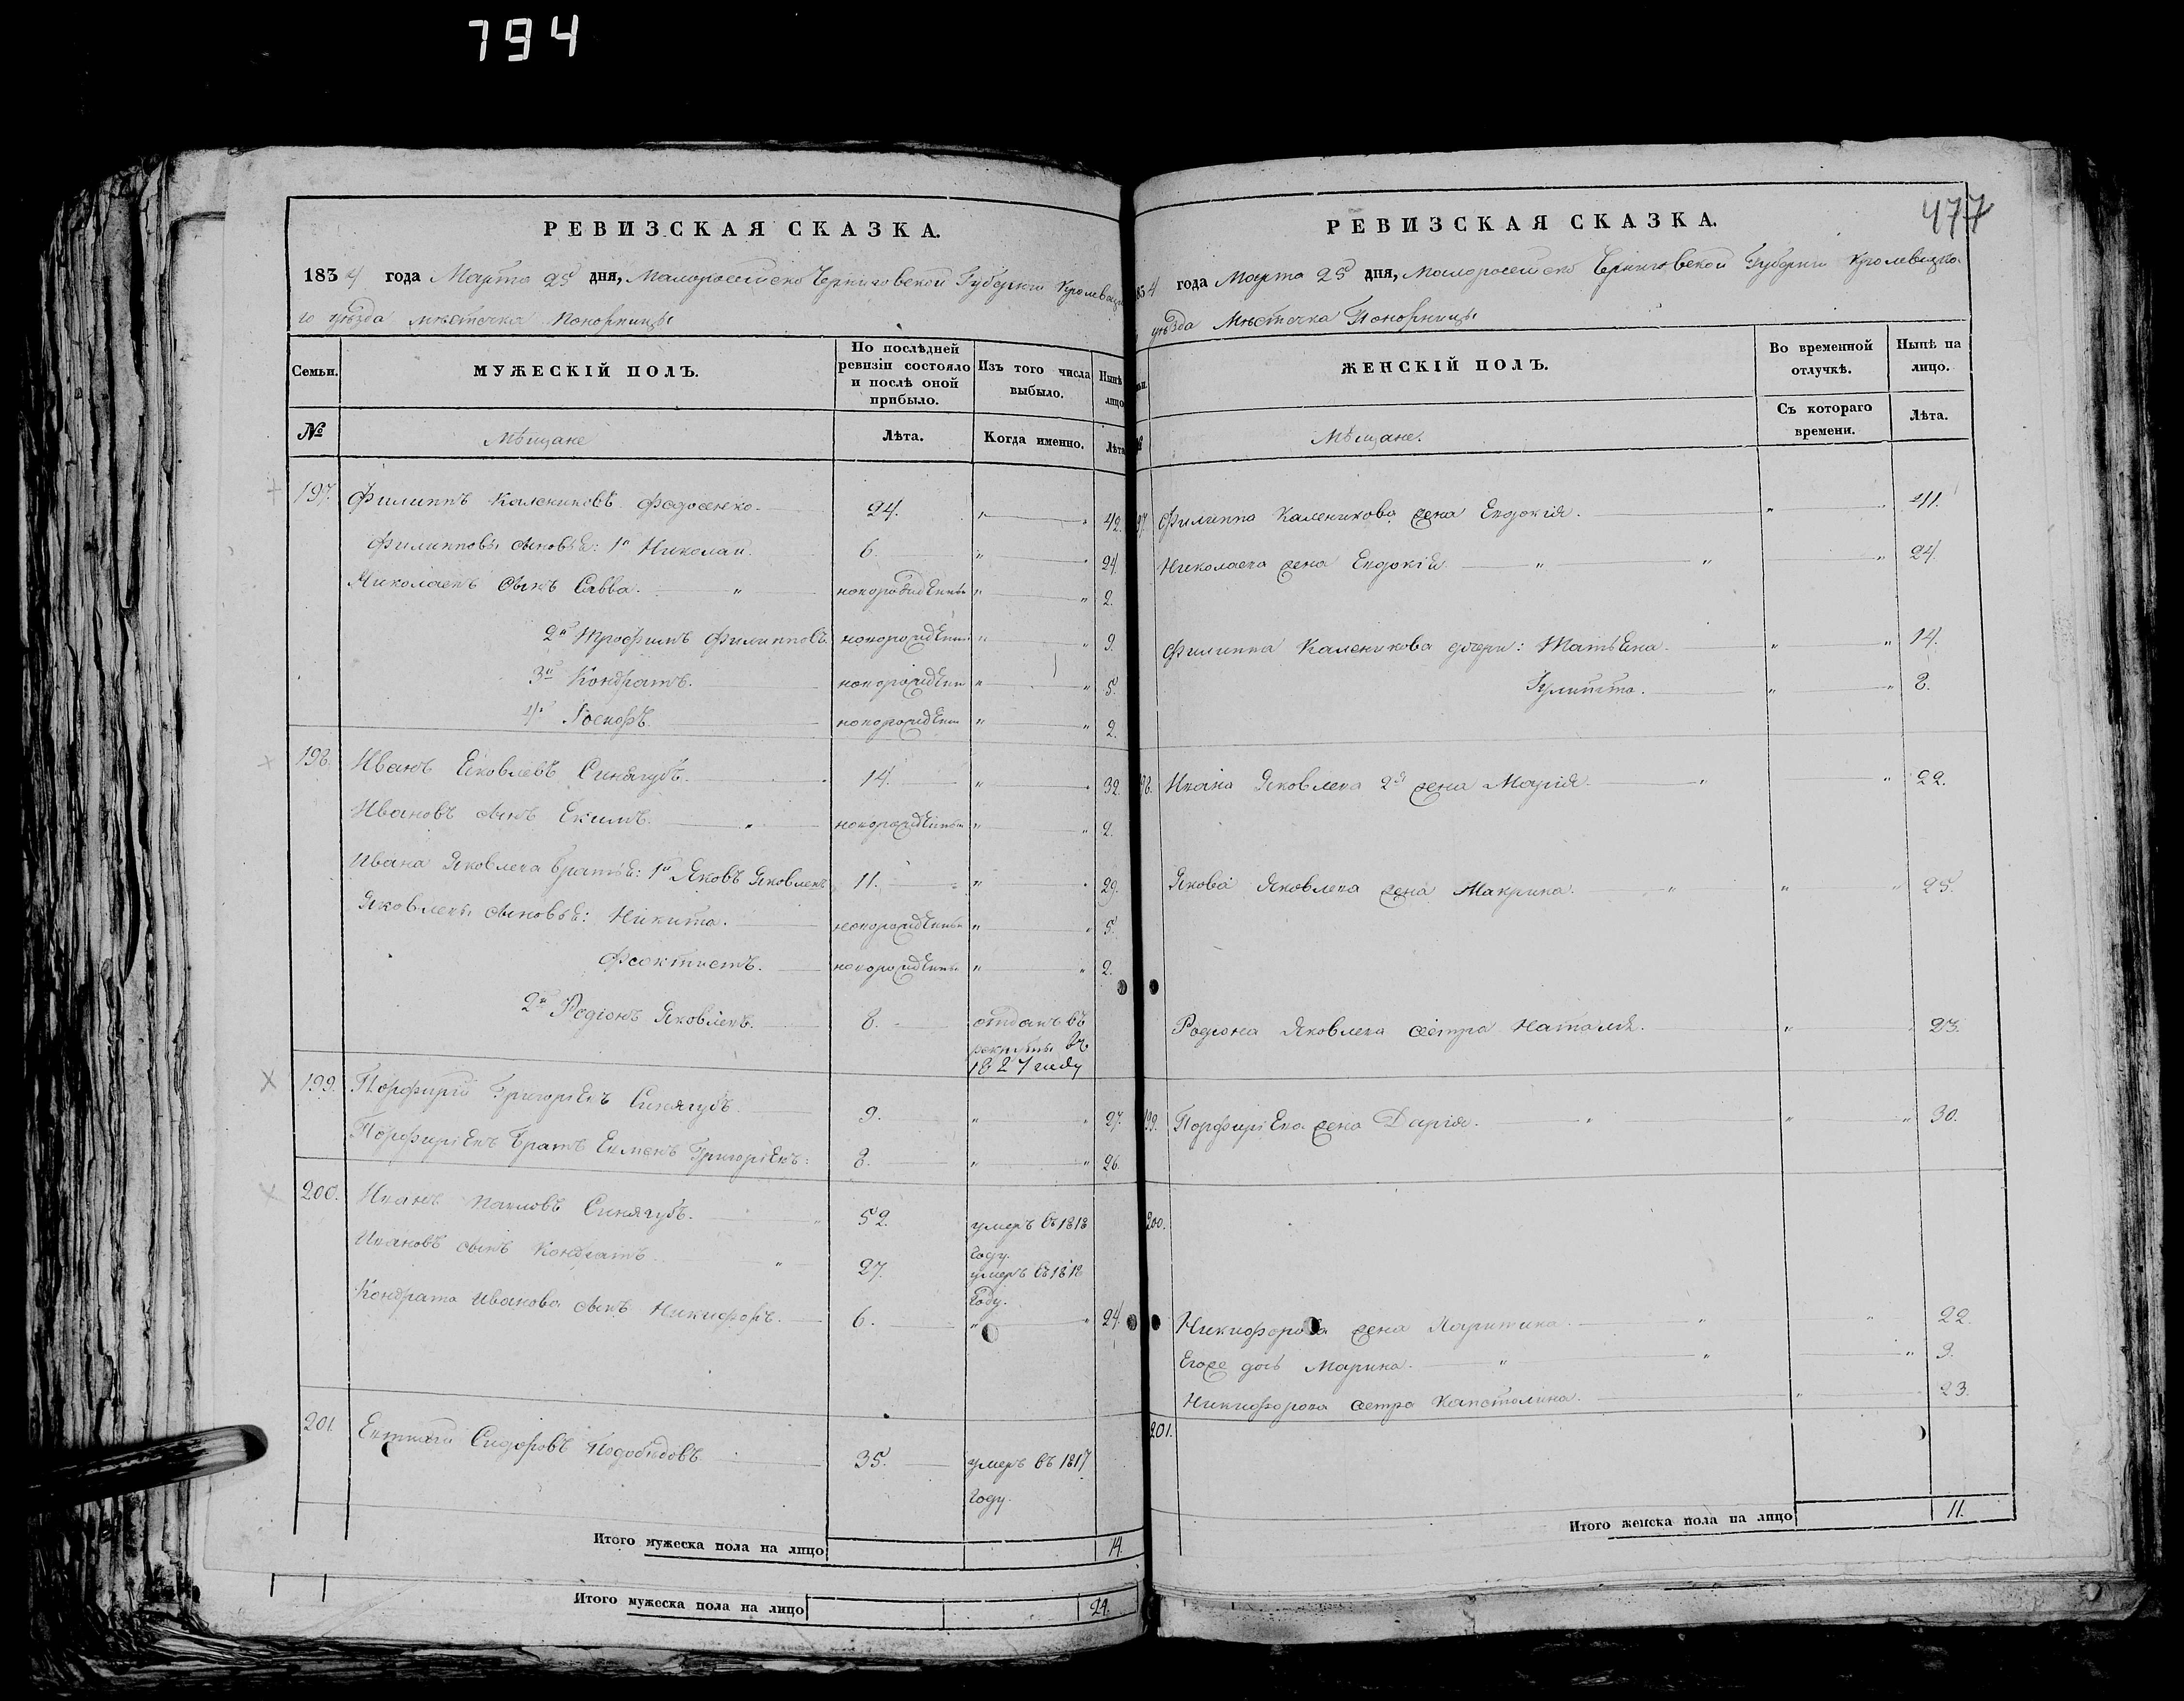 794
РЕВИЗСКАЯ СКАЗКА.
1834 года Марта 25 дня, Малороссийско Черниговской Губернии Кролевецка
го уѣзда мѣстечка Понорницы
Семьи.
МУЖЕСКІЙ ПОЛЪ.
По послѣдней ревизіи состояло и послѣ оной прибыло.
Изъ того числа выбыло.
Нынѣ лицо
№
Мѣщане
Лѣта.
Когда именно.
Лѣта
197. Филиппъ Калениковъ Федосенко. 24. " " 42.
Филипповы сыновья: 1й Николай. 6. " " 24.
Николаевъ сынъ Савва. " новорожденный " " 2.
2й Трофимъ Филипповъ новорожденный " " 9.
3й Кондратъ. новорожденный " " 5.
4й новорожденный " " 2.
198. Иванъ Яковлевъ Синягубъ. 14. " " 32.
Ивановъ сынъ Екимъ. " новорожденный " " 2.
Ивана Яковлева братья: 1й Яковъ Яковлевъ 11. " " 29.
Яковлевы сыновья: Никита. новорожденный " " 5.
Феоктистъ. новорожденный " " 2.
2й Родіонъ Яковлевъ. 8. отданъ въ
рекруты въ
1827 году
199. Порфирій Григорьевъ Синягубъ. 9. " " 27.
Порфирьевъ братъ Григорьевъ: 8. " " 26.
200. Иванъ Павловъ Синягубъ. 52. умеръ въ 1818
году.
Ивановъ сынъ Кондратъ 27. умеръ въ 1818
году.
Кондрата Иванова сынъ Никифоръ. 6. " " 24.
201. Евтихій Сидоровъ 35. умеръ въ 1817
году.
Итого мужеска пола на лицо 14.
Итого мужеска пола на лицо 24.
477
РЕВИЗСКАЯ СКАЗКА.
834 года Марта 25 дня, Малороссийско Черниговской Губернии Кролевецка
уѣзда Мѣстечка Понорницы
ЖЕНСКІЙ ПОЛЪ.
Во временной отлучкѣ.
Нынѣ на лицо.
Мѣщане.
Съ котораго времени.
Лѣта.
97. Филиппа Каленикова жена Евдокія. " 41.
Николаева жена Евдокія " " " 24.
Филиппа Каленикова дочери: Татьяна. " " 14.
Улита. " " 8.
98. Ивана Яковлева 2я жена Марія. " " 22.
Якова Яковлева жена Макрина. " " " 25.
Родиона Яковлева сестра Наталія. " " 23.
199. Порфирьева жена Дарія. " " " 30.
200.
Никифорова жена Харитина. " " 22.
Егоже дочь Марина. " " " 3.
Никифорова сестра Капетолина. " 23.
201.
Итого женска пола на лицо 11.